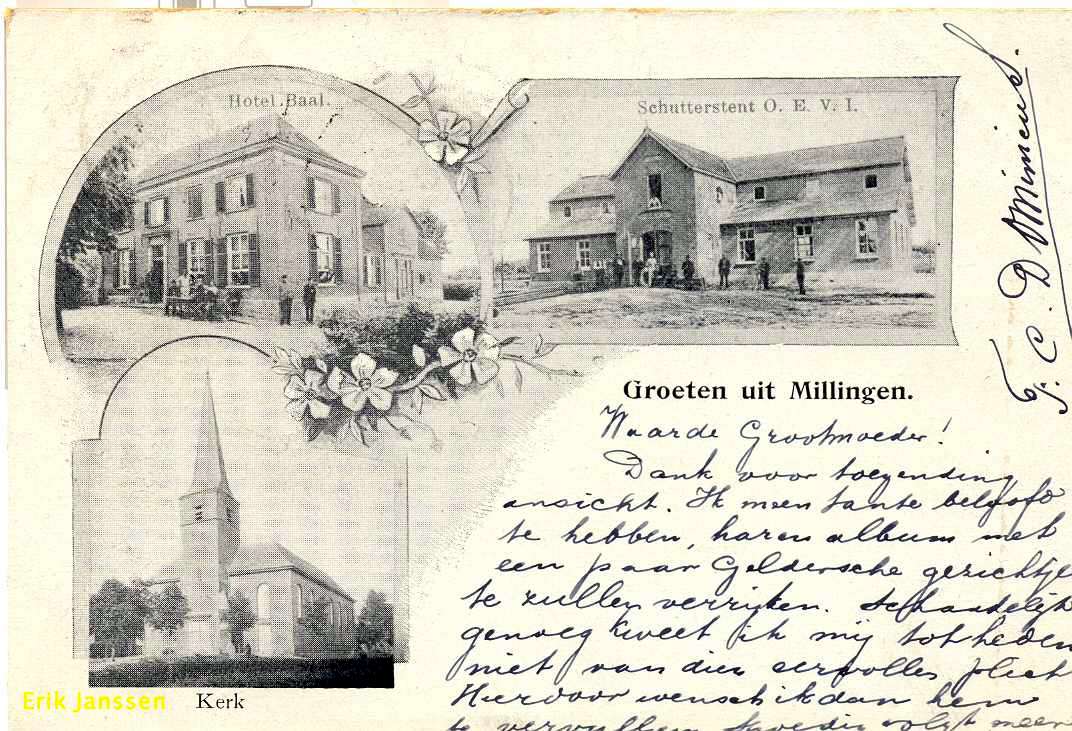 Hotel Baal.
Schutterstent O. E. V. I.
Groeten uit Millingen.
Waarde Grootmoeder!
Dank voor toezending
ansicht. Ik meen tante beloofd
te hebben, haren album met
een paar Geldersche gezichtje
te zullen verrijken. Schandelijk
genoeg kweet ik mij tot heden
niet van dien eervollen plicht
Hiervoor wensch ik dan hem
te vervullen. Spoedig volgt meer
F. C. D.
Erik Janssen
Kerk